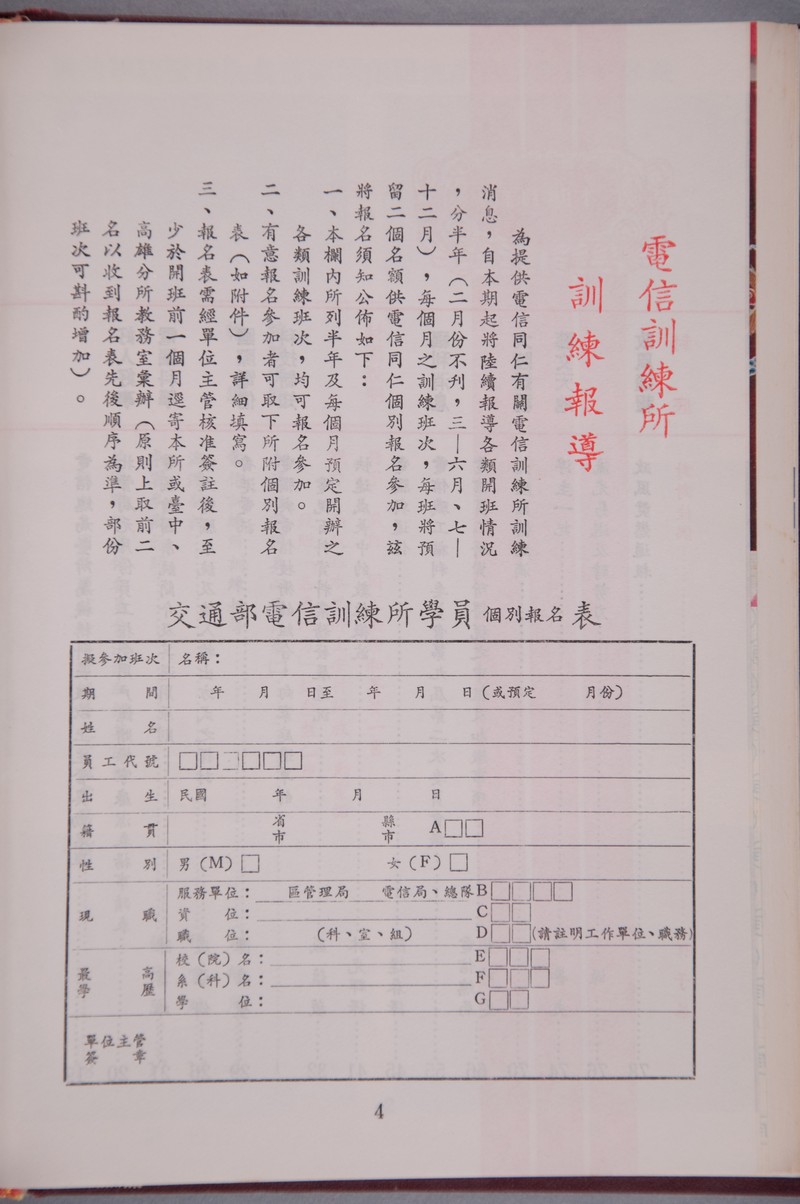 電信訓練所
訓練報導
為提供電信同仁有關電信訓練所訓練
消息，自本期起將陸續報導各類開班情況
，分半年（二月份不刋，三—六月、七—
十二月），每個月之訓練班次，每班將預
留二個名額供電信同仁個別報名參加，茲
將報名須知公佈如下：
一、本欄內所列半年及每個月預定開辦之
各類訓練班次，均可報名參加。
二、有意報名參加者可取下所附個別報名
表（如附件），詳細填寫。
三、報名表需經單位主管核准簽註後，至
少於開班前一個月逕寄本所或臺中、
高雄分所教務室彙辦（原則上取前二
名以收到報名表先後順序為準，部份
班次可斟酌增加）。
交通部電信訓練所學員個別報名表
擬參加班次 名稱：
期間 年 月 日至 年 月 日（或預定 月份）
姓名
員工代號 □□□□□□
出生 民國 年 月 日
籍貫 省市 縣市 A□□
性別 男（M）□ 女（F）□
現職 服務單位： 區管理局 電信局、總隊 B□□□□
資位： C□□
職位： （科、室、組） D□□（請註明工作單位、職務）
最高學歷 校（院）名： E□□□
系（科）名： F□□□
學位： G□□
單位主管
簽章
4